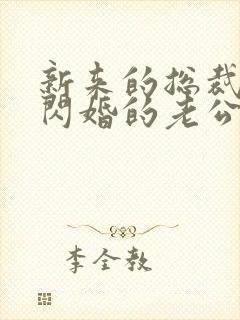 新来的总裁
闪婚的老公
李全教